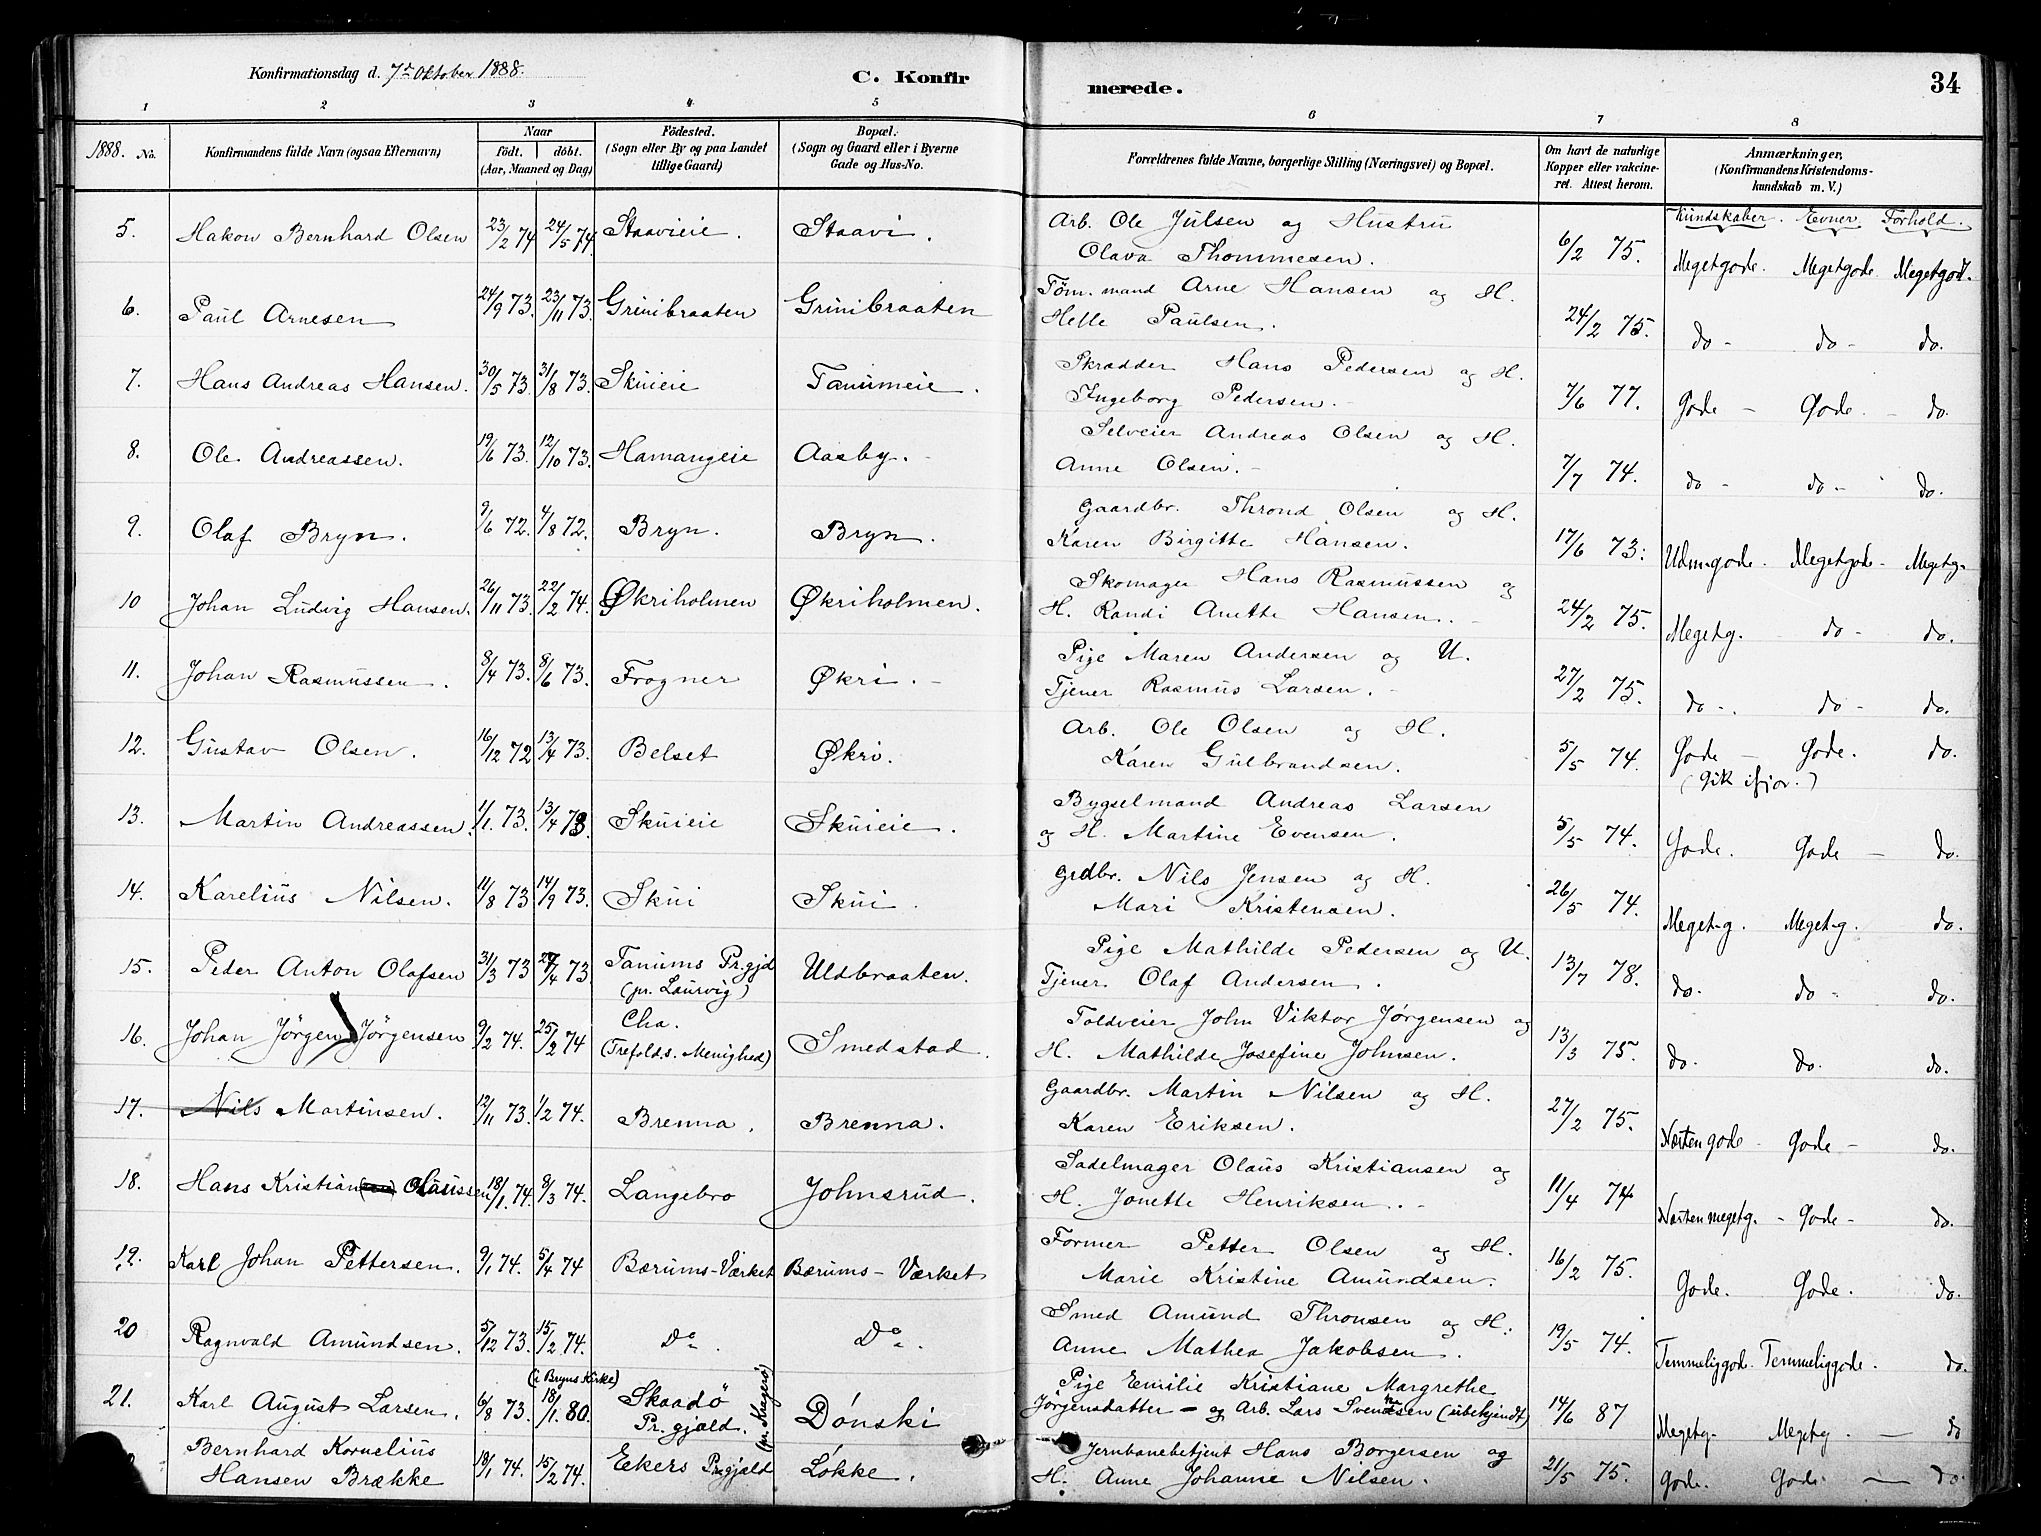 Konfirmationsdag d. 7de Oktober 1888.
C. Konfirmerede.
34
1 2 3 4 5 6 7 8
1888. No.
Konfirmandens fulde Navn (ogsaa Efternavn)
Naar
födt. döbt.
(Aar, Maaned og Dag)
Födested.
(Sogn eller By og paa Landet
tillige Gaard)
Bopæl.
(Sogn og Gaard eller i Byerne
Gade og Hus-No.
Forældrenes fulde Navne, borgerlige Stilling (Næringsvei) og Bopæl.
Om havt de naturlige
Kopper eller vakcine-
ret. Attest herom.
Anmærkninger,
(Konfirmandens Kristendoms-
kundskab m. V.)
Kundskaber. Evner. Forhold.
5. Hakon Bernhard Olsen 23/2 74 24/5 74. Staavieie. Staavi. Arb. Ole Julsen og Hustru
Olava Thommesen. 6/2 75. Megetgode. Megetgode. Megetgod.
6. Paul Arnesen 24/9 73. 23/11 73. Grinibraaten Grinibraaten Töm. mand Arne Hansen og H.
Helle Paulsen. 24/2 75. do - do - do.
7. Hans Andreas Hansen. 30/5 73. 31/8 73. Skuieie Tanumeie. Skrædder Hans Pedersen og H.
Ingeborg Pedersen. 7/6 77. Gode - Gode. - do.
8. Ole Andreassen. 19/6 73. 12/10 73. Hamangeie Aasby. Selveier Andreas Olsen og H.
Anne Olsen. 7/7 74. do - do - do.
9. Olaf Bryn. 9/6 72. 4/8 72. Bryn. Bryn. Gaardbr. Thrond Olsen og H.
Karen Birgitte Hansen. 17/6 73. Udm. gode. Megetgode - Megetg.
10 Johan Ludvig Hansen. 26/11 73. 22/2 74. Økriholmen Økriholmen. Skomager Hans Rasmussen og
H. Randi Anette Hansen. 24/2 75. Megetg. - do - do.
11. Johan Rasmussen. 8/4 73. 8/6 73. Frogner Økri. - Pige Maren Andersen og U.
Tjener Rasmus Larsen. - 27/2 75. do - do - do.
12. Gustav Olsen. 16/12 72 13/4 73. Belset Økri. Arb. Ole Olsen og H.
Karen Gulbrandsen. 5/5 74. Gode - Gode. do.
(gik ifjor.)
13. Martin Andreassen. 1/1. 73. 13/4 73. Skuieie Skuieie. Bygselmand Andreas Larsen
og H. Martine Evensen. 5/5 74. Gode. Gode - do.
14. Karelius Nilsen. 11/8 73 14/9 73. Skui Skui. Grdbr. Nils Jensen og H.
Mari Kristensen. 26/5 74. Meget g. Meget g. do.
15. Peder Anton Olafsen 31/3 73 27/4 73. Tanums Pr.gjd
(pr. Laurvig) Uldbraaten. Pige Mathilde Pedersen og U.
Tjener Olaf Andersen. 13/7 78. do. do - do.
16. Johan Jörgen Jörgensen 9/2 74. 25/2 74 Cha.
(Trefolds. Menighed) Smedstad. Toldveier John Viktor Jörgensen og
H. Mathilde Josefine Johnsen. 13/3 75. do. do. do.
17. Nils Martinsen. 12/11 73. 1/2 74. Brenna. Brenna. Gaardbr. Martin Nilsen og H.
Karen Eriksen. 27/2 75. Næsten gode - Gode - do.
18. Hans Kristian Olaussen 18/1. 74. 8/3 74. Langebro Johnsrud. Sadelmager Olaus Kristiansen og
H. Jonette Henriksen. - 11/4 74 Næsten megetg. - Gode - do.
19. Karl Johan Pettersen. 9/1 74. 5/4 74 Bærums-Værket Bærums-Værket Former Petter Olsen og H.
Marie Kristine Amundsen. 16/2 75. Gode. Gode. do.
20 Ragnvald Amundsen. 5/12 73. 15/2 74. Do. Do. Smed Amund Thronsen og H.
Anne Mathea Jakobsen. 19/5 74. Temmeliggode. Temmeliggode. do.
21. Karl August Larsen. 6/8 73. (i Bryns Kirke) 18/1. 80. Skaadö
Pr. gjæld. (pr. Kragerö) Dönski Pige Emilie Kristiane Margrethe
Jörgensdatter - og Arb. Lars Svendsen (ubekjendt) 14/6 87 Megetg. Megetg. - do
Bernhard Kornelius
Hansen Brække 18/1 74. 15/2 74. Ekers Pr.gjæld Løkke. Jernbanebetjent Hans Borgersen og
H. Anne Johanne Nilsen. 21/5 75. Gode. Gode - do.